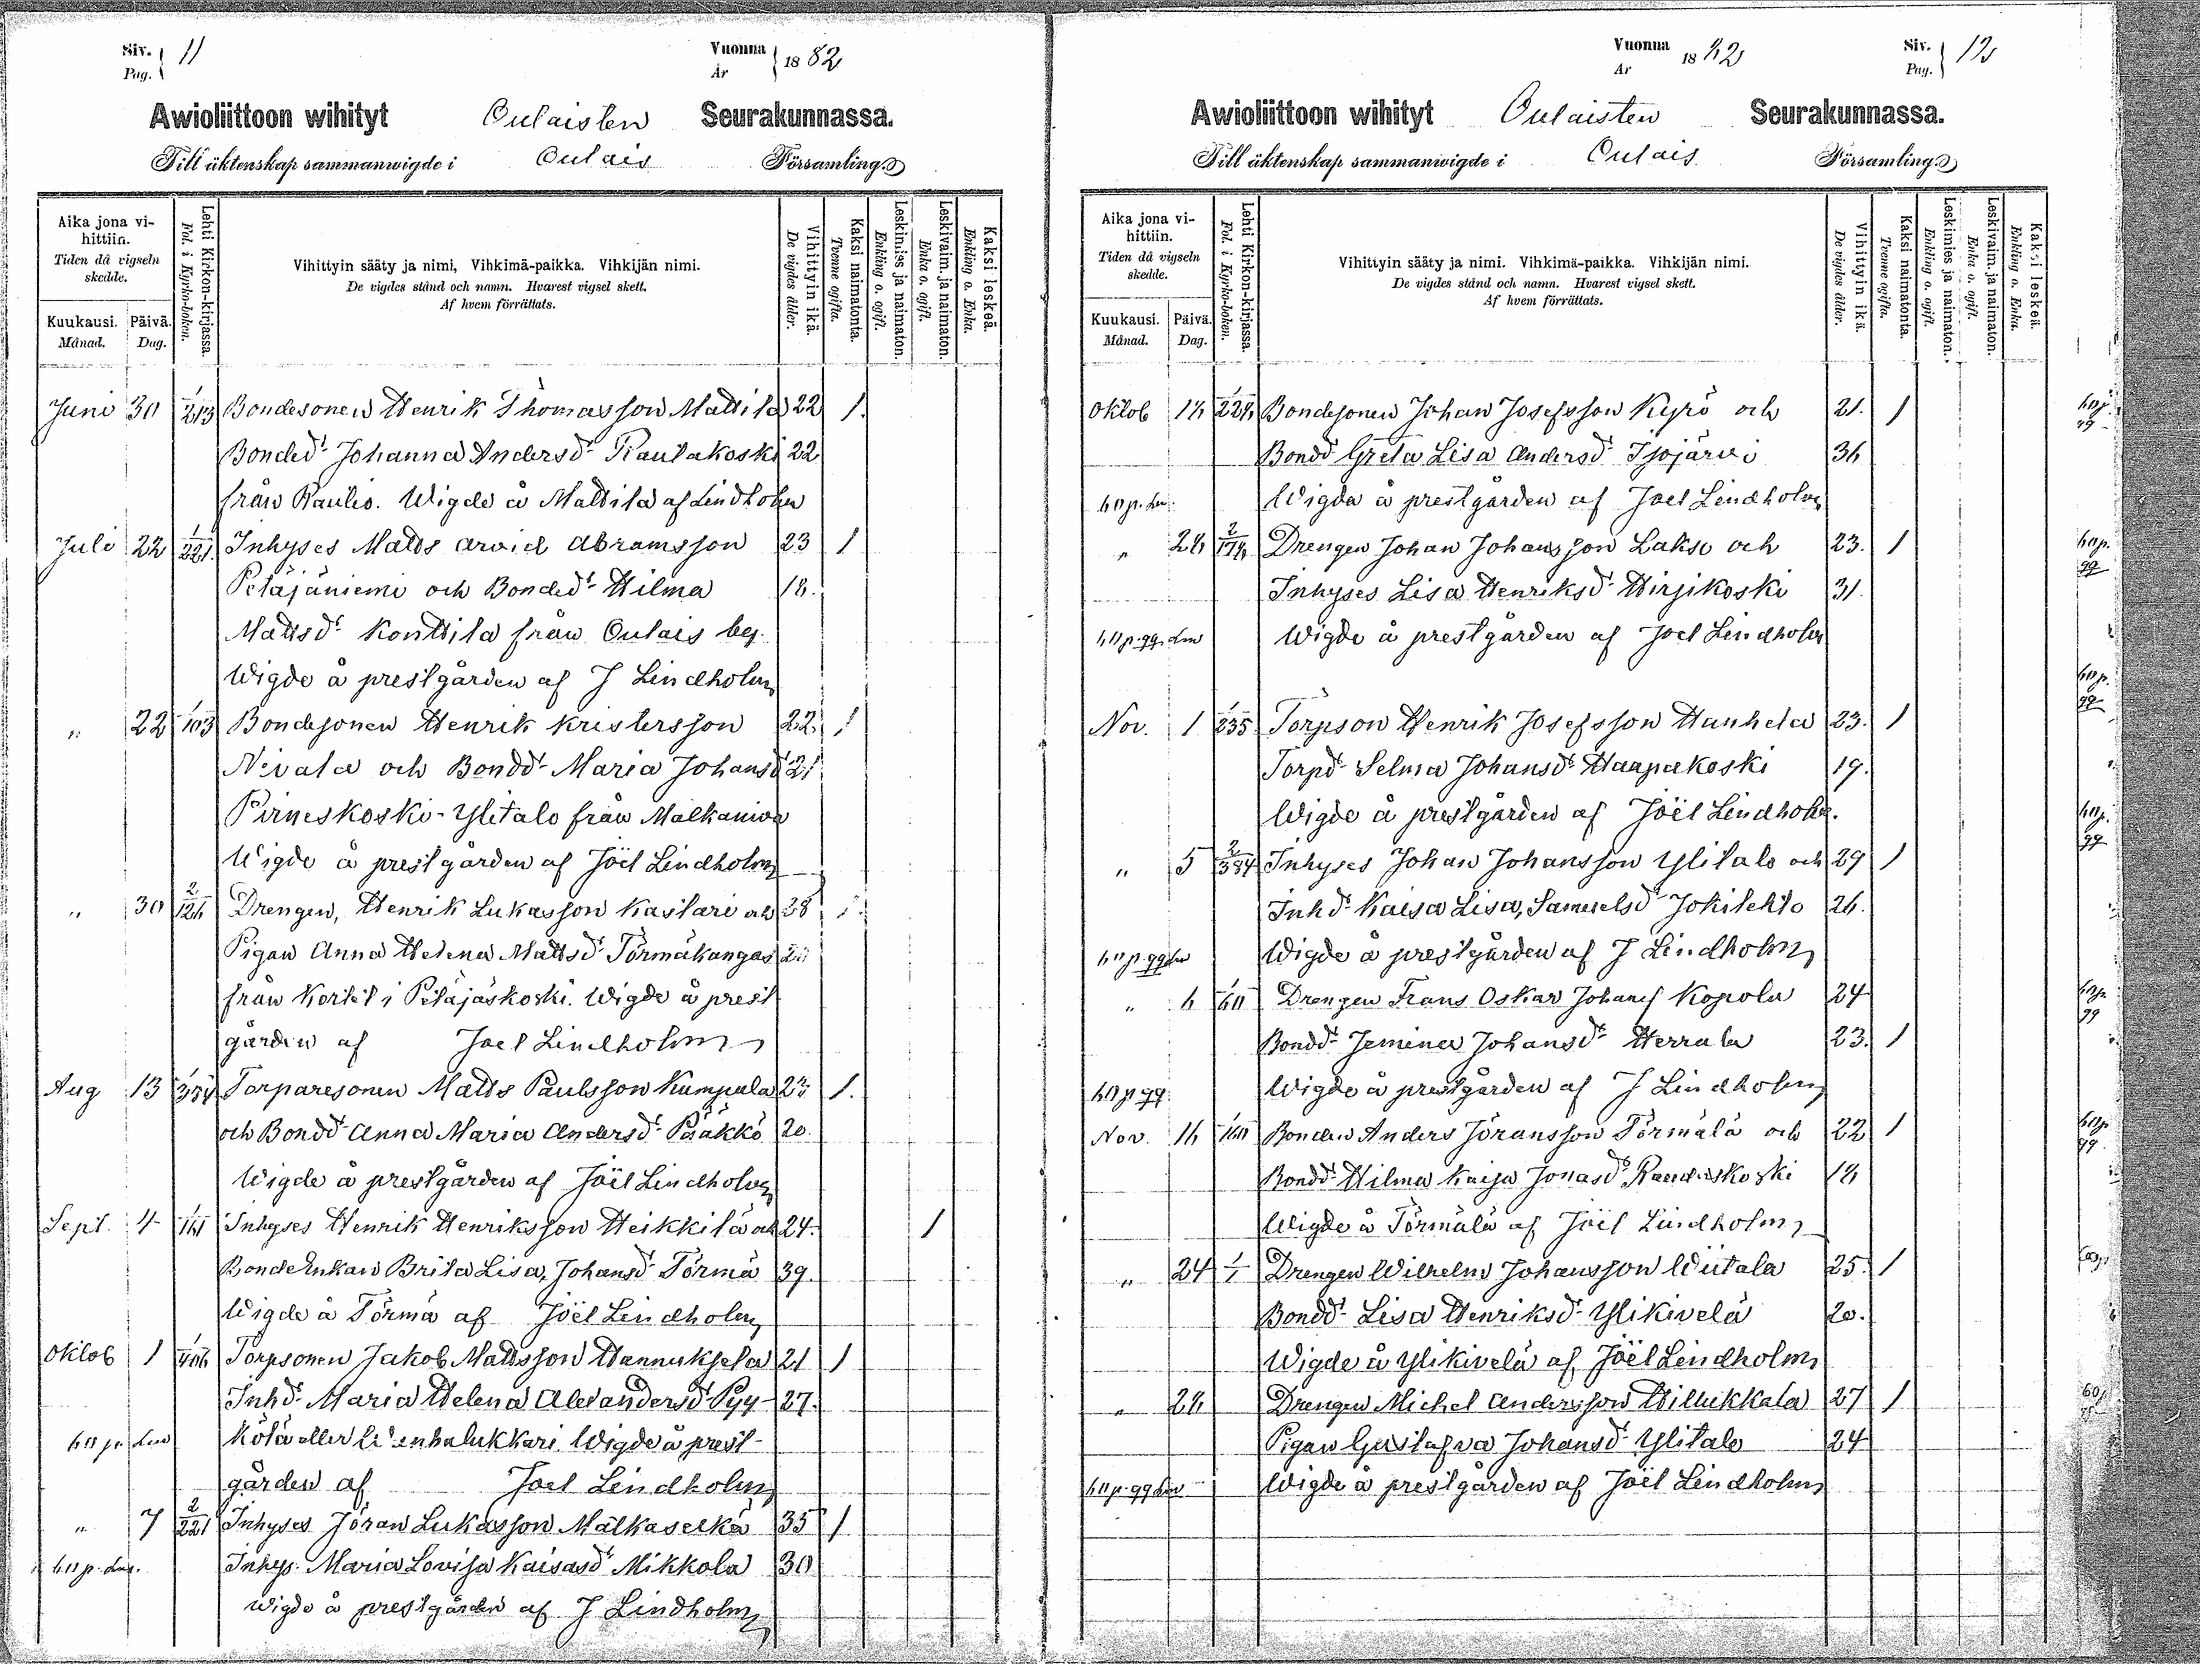 Siv. Pag. 11
Vuonna År 1882
Awioliittoon wihityt Oulaisten Seurakunnassa.
Till äktenskap sammanwigde i Oulais Församling.
Aika jona vihittiin.
Tiden då vigseln skedde.
Kuukausi. Månad.
Päivä. Dag.
Lehti Kirkon-kirjassa.
Fol. i Kyrko-boken.
Vihittyin sääty ja nimi, Vihkimä-paikka. Vihkijän nimi.
De vigdes stånd och namn. Hvarest vigsel skett.
Af hvem förrättats.
Vihittyin ikä.
De vigdes ålder.
Kaksi naimatonta.
Tvenne ogifta.
Leskimies ja naimaton.
Enkling o. ogift.
Leskivaim. ja naimaton.
Enka o. ogift.
Kaksi leskeä.
Enkling o. Enka.
Juni 30 1/213 Bondesonen Henrik Thomasson Mattila 22 1.
Bonded:r Johanna Andersd:r Rautakoski 22
från Paulio. Wigde å Mattila af Lindholm
Juli 22 1/221. Inhyses Matts Arvid Abramsson 23 1
Petäjäniemi och Bonded:r Hilma 18.
Mattsd:r Konttila från Oulais by.
Wigde å prestgården af J Lindholm
" 22 1/103 Bondesonen Henrik Kristersson 22 1
Nivala och Bondd:r Maria Johansd:r 21
Pirneskoski-Ylitalo från Matkaniva
Wigde å prestgården af Joël Lindholm
" 30 Drengen, Henrik Lukasson Kastari och 28 1.
Pigan Anna Helena Mattsd:r Törmäkangas
från Kortet i Petäjäskoski. Wigde å prest
gården af Joel Lindholm
Aug 13 Torparesonen Matts Paulsson Kumpula 1.
och Bondd:r Anna Maria Andersd:r Pääkkö 20.
Wigde å prestgården af Joël Lindholm
Sept. 4 Inhyses Henrik Henriksson Heikkilä och 24. 1
Bonde Enkan Brita Lisa, Johansd:r Törmä 39.
Wigde å Törmä af Joël Lindholm
Oktob 1 1/406 Torpsonen Jakob Mattsson Hannuksela 21 1
Inhd:r Maria Helena Alexandersd:r Pyy- 27.
kölä eller Wigde å prest-
gården af Joel Lindholm
" 7 2/221 Inhyses Jöran Lukasson Mälkaselkä 35 1
Inhys. Maria Lovisa Kaisasd:r Mikkola 30
Wigde å prestgården af J Lindholm
Vuonna År 1882
Siv. Pag. 12
Awioliittoon wihityt Oulaisten Seurakunnassa.
Till äktenskap sammanwigde i Oulais Församling.
Aika jona vihittiin.
Tiden då vigseln skedde.
Kuukausi. Månad.
Päivä. Dag.
Lehti Kirkon-kirjassa.
Fol. i Kyrko-boken.
Vihittyin sääty ja nimi. Vihkimä-paikka. Vihkijän nimi.
De vigdes stånd och namn. Hvarest vigsel skett.
Af hvem förrättats.
Vihittyin ikä.
De vigdes ålder.
Kaksi naimatonta.
Tvenne ogifta.
Leskimies ja naimaton.
Enkling o. ogift.
Leskivaim. ja naimaton.
Enka o. ogift.
Kaksi leskeä.
Enkling o. Enka.
Oktob Bondesonen Johan Josefsson Kyrö och 21. 1
Bondd Greta Lisa Andersd:r Isojärvi 36
Wigda å prestgården af Joel Lindholm
" Drengen Johan Johansson Lakso och 23. 1
Inhyses Lisa Henriksd:r Hirsikoski 31
Wigde å prestgården af Joel Lindholm
Nov. 1 1/235 Torpson Henrik Josefsson Hanhela 23. 1
Torpd:r Selma Johansd:r Haapakoski 19.
Wigde å prestgården af Joël Lindholm.
" 5 2/384 Inhyses Johan Johansson Ylitalo och 29 1
Inhd:r Kaisa Lisa, Samuelsd:r Jokilehto 26.
Wigde å prestgården af J Lindholm
" 6 Drengen Frans Oskar Johans Kopola 24
Bondd:r Jemina Johansd:r Herrala 23. 1
Wigde å prestgården af J Lindholm
Nov. 16 Bonden Anders Jöransson Törmälä och 22 1
Bondd:r Hilma Kaisa Jonasd:r Raudaskoski 18
Wigde å Törmälä af Joël Lindholm
" 24 1/1 Drengen Wilhelm Johansson Wiitala 25. 1
Bondd:r Lisa Henriksd:r Ylikivelä 20.
Wigde å Ylikivelä af Joël Lindholm
" Drengen Michel Andersson Hillukkala 27 1
Pigan Gustafva Johansd:r Ylitalo 24
Wigde å prestgården af Joël Lindholm